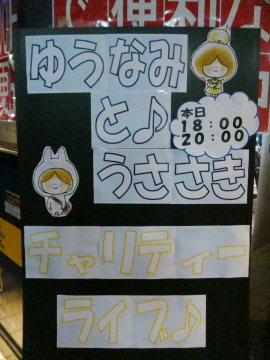 で便利な
ゆうなみ
と♪
本日
18：00
20：00
うささき
チャリティー
ライブ♪